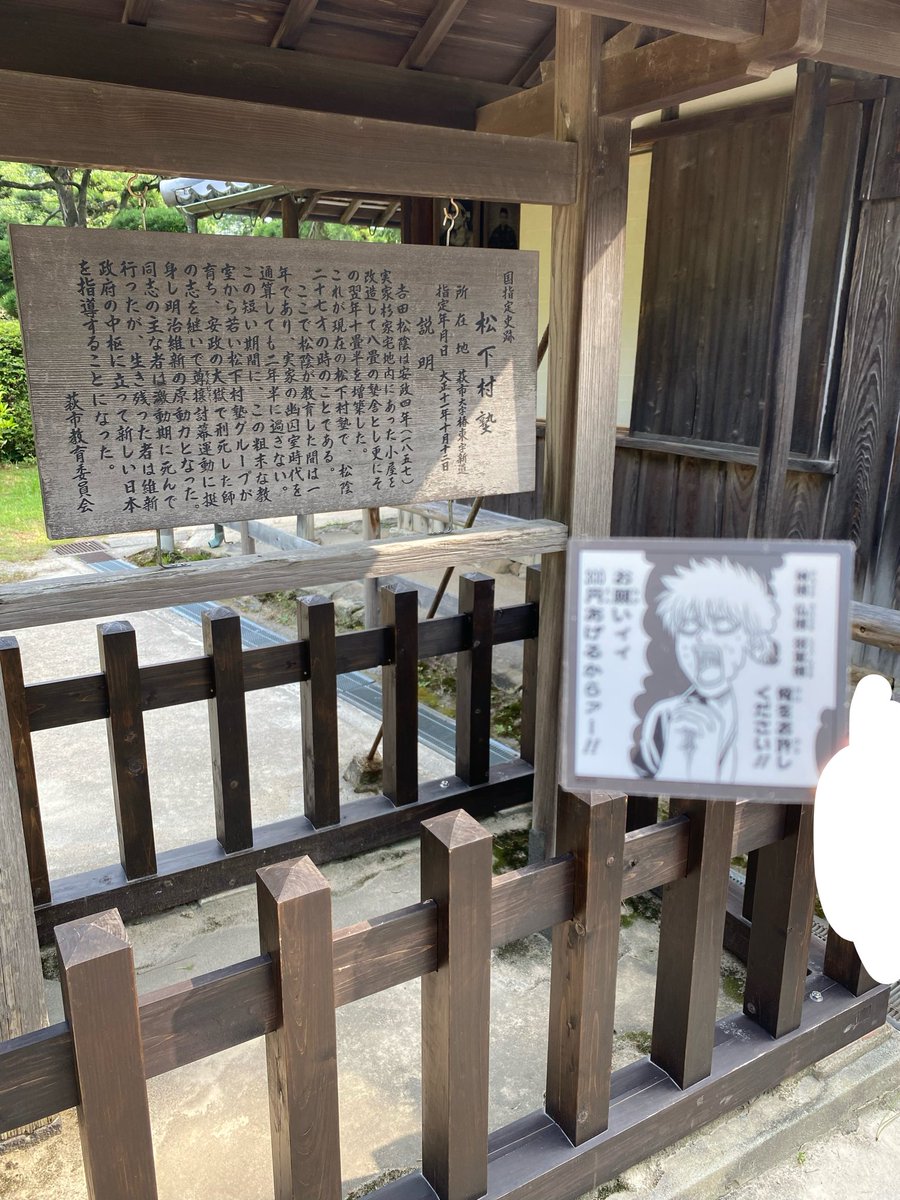 国指定史跡
松下村塾
所在地 萩市大字椿東字新道
指定年月日 大正十一年十月十二日
説明
吉田松陰は安政四年(一八五七)
実家杉家宅地内にあった小屋を
改造して八畳の塾舎とし更にそ
の翌年十畳半を増築した。
これが現在の松下村塾で 松陰
二十七才の時のことである。
ここで松陰が教育した間は一
年であり、実家の幽囚室時代を
通算しても二年半に過ぎない。
この短い期間に この粗末な教
室から若い松下村塾グループが
育ち、安政の大獄で刑死した師
の志を継いで尊攘討幕運動に挺
身し明治維新の原動力となった。
同志の主な者は激動期に死んで
行ったが、生き残った者は維新
政府の中枢に立って新しい日本
を指導することになった。
萩市教育委員会
神様 仏様 将軍様
俺をお許し
ください!!
お願いィィ
300円あげるからァー!!